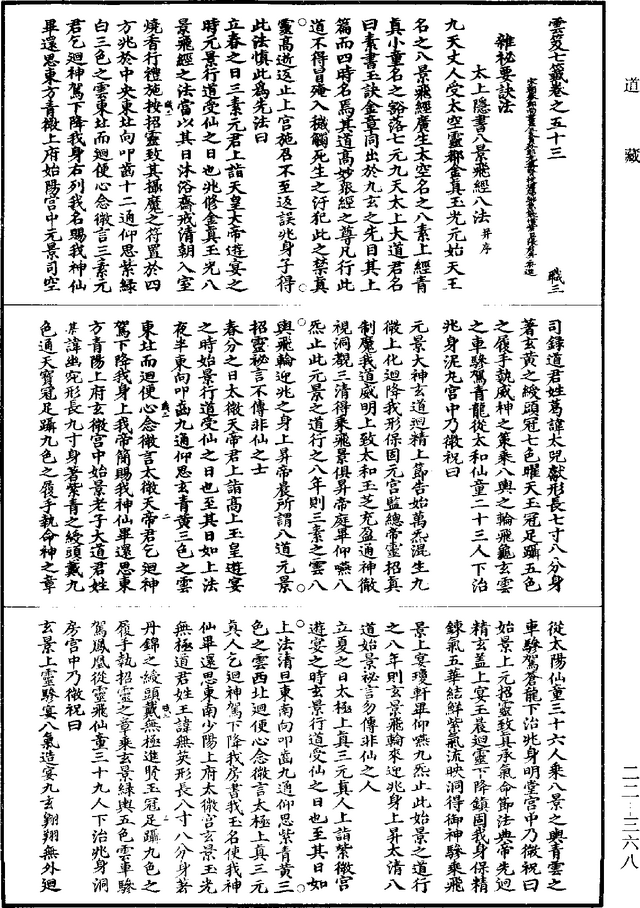 道藏
雲笈七籤卷之五十三
職三
雜秘要訣法
太上隱書八景飛經八法并序
九天丈人受太空靈都金真玉光元始天王
名之八景飛經廣生太空名之八素上經青
真小童名之豁落七元九天太上大道君名
曰素書玉訣金章同出於九玄之先目其上
篇而四時名焉其道高妙衆經之尊凡行此
道不得冒殗入穢觸死生之汙犯此之禁真
靈高逝返止上宮施召不至返誤兆身子得
此法慎此爲先法曰
立春之日三素元君上詣天皇大帝遊宴之
時元景行道受仙之日也兆修金真玉光八
景飛經之法當以其日沐浴齋戒清朝入室
燒香行禮施按招靈致真攝魔之符置於四
方兆於中央東北向叩齒十二通仰思紫綠
白三色之雲東北而迴便心念微言三素元
君乞迴神駕下降我身右列我名賜我神仙
畢還思東方青微上府始陽宮中元景司空
司録道君姓葛諱太兕獻形長七寸八分身
著玄黃之綬頭冠七色曜天玉冠足躡五色
之履手執威神之策乘八輿之輪飛龜玄雲
之車驂駕青龍從太和仙童二十三人下治
兆身泥丸宮中乃微祝曰
元景大神玄道迴精上節告始萬炁混生九
微上化迴降我形保固元宮監總帝靈招真
制魔我道威明上致太和玉芝充盈通神徹
視洞觀三清得乘飛景俱昇帝庭畢仰嚥八
炁止此元景之道行之八年則三素之雲八
輿飛輪迎兆之身上昇帝晨所謂八道元景
招靈祕言不傳非仙之士
春分之日太微天帝君上詣高上玉皇遊宴
之時始景行道受仙之日也至其日如上法
夜半東向叩齒九通仰思玄青黃三色之雲
東北而迴便心念微言太微天帝君乞迴神
駕下降我身上我帝簡賜我神仙畢還思東
方青陽上府玄微宮中始景老子大道君姓
某諱幽宛形長九寸身著紫青之綬頭戴九
色通天寶冠足躡九色之履手執命神之章
從太陽仙童三十六人乘八景之輿青雲之
車驂駕蒼龍下治兆身明堂宮中乃微祝曰
始景上元招靈致真承氣命節法典帝先迴
精玄蓋上宴玉晨迴靈下降鎮固我身保精
鍊氣五華結鮮紫氣流映洞得御神驂乘飛
景上宴瓊軒畢仰嚥九炁止此始景之道行
之八年則玄景飛輪來迎兆身上昇太清八
道始景祕言勿傳非仙之人
立夏之日太極上真三元真人上詣紫微宮
遊宴之時玄景行道受仙之日也至其日如
上法清旦東南向叩齒九通仰思紫青黃三
色之雲西北迴便心念微言太極上真三元
真人乞迴神駕下降我房書我玉名使我神
仙畢還思東南少陽上府太微宮玄景玉光
無極道君姓王諱無英形長八寸八分身著
丹錦之綬頭戴無極進賢玉冠足躡九色之
履手執招靈之章乘玄景緑輿五色雲車驂
駕鳳凰從靈飛仙童三十九人下治兆身洞
房宮中乃微祝曰
玄景上靈驂宴八氣造宴九玄翱翔無外迴
二二—三六八